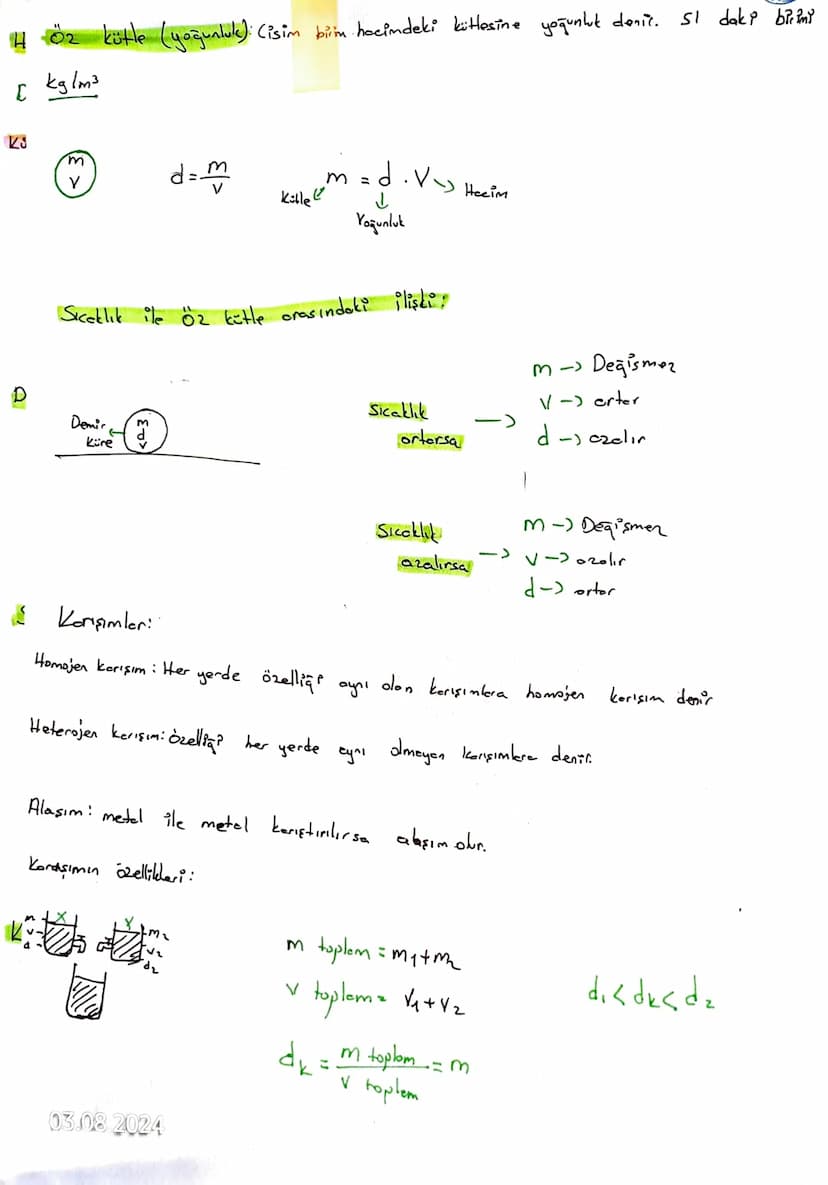 H Öz kütle (yoğunluk): Cisim birim hacimdeki kütlesine yoğunluk denir. SI daki birimi
kg/m³
m
V
d = m/v
m = d . V
Kütle
Yoğunluk
Hacim
Sıcaklık ile Öz kütle arasındaki ilişki:
D
Demir Küre
m
d
v
Sıcaklık artarsa →
m → Değişmez
V → artar
d → azalır
Sıcaklık azalırsa →
m → Değişmez
V → azalır
d → artar
Karışımlar:
Homojen karışım: Her yerde özelliği aynı olan karışımlara homojen karışım denir
Heterojen karışım: özelliği her yerde aynı olmayan karışımlara denir.
Alaşım: metal ile metal karıştırılırsa alaşım olur.
Karışımın özellikleri:
K
m
v
d
X
Y
m₂
v₂
d₂
m toplam = m₁+m₂
V toplam = V₁+V₂
d₁<dk<d₂
dk = m toplam / V toplam = m
03.08.2024